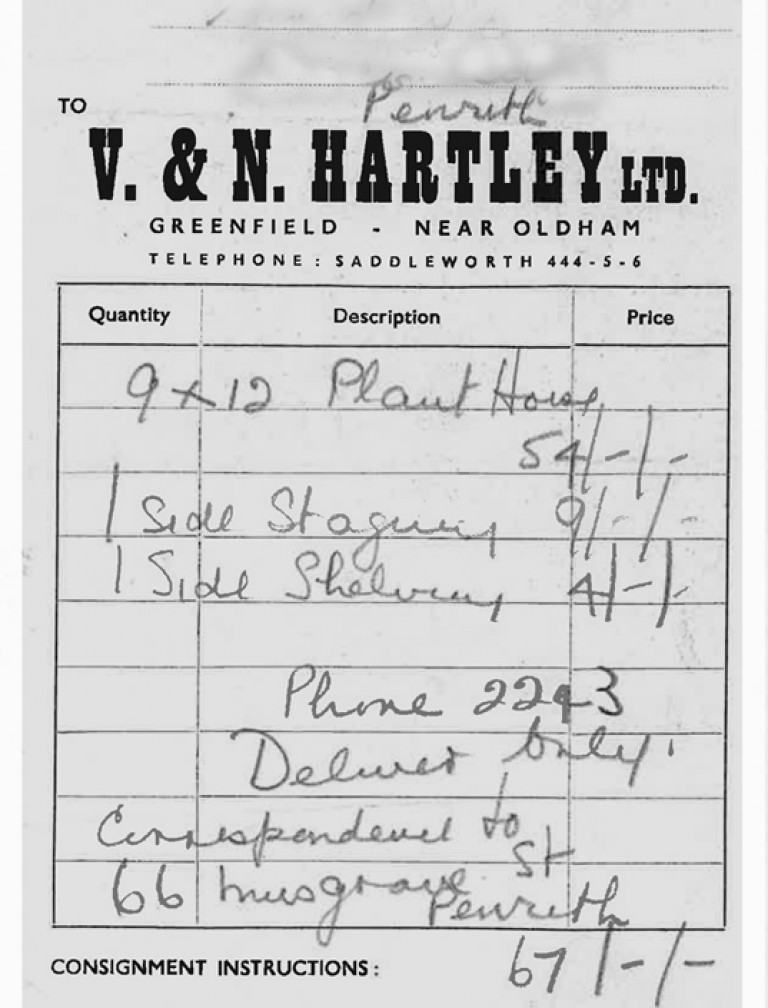 Penrith
TO
V. & N. HARTLEY LTD.
GREENFIELD - NEAR OLDHAM
TELEPHONE : SADDLEWORTH 444-5-6
Quantity Description Price
9 x 12 Plant House
54/-/-
1 Side Staging 9/-/-
1 Side Shelving 4/-/-
Phone 2293
Deliver only
Correspondence to
66 Musgrave St
Penrith
67/-/-
CONSIGNMENT INSTRUCTIONS :